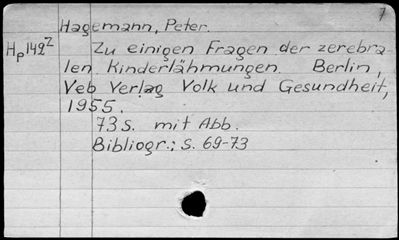 7
Hagemann, Peter.
Hp 142Z Zu einigen Fragen der zerebra-
len Kinderlähmungen. Berlin,
Veb Verlag Volk und Gesundheit,
1955.
73 S. mit Abb.
Bibliogr.: S. 69-73